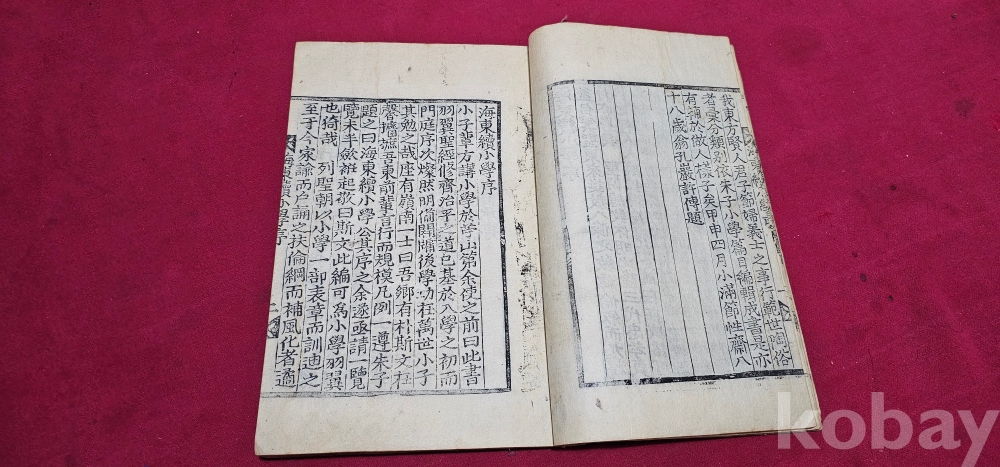 我東方賢人君子節婦義士之事行範世陶俗
者彙分類別依朱子小學篇目編輯成書是亦
有補於做人樣子矣甲申四月小滿節性齋八
十八歲翁孔巖許傳題
海東續小學序
小子輩方講小學於学山第余使之前曰此書
羽翼聖經修齊治平之道已基於八學之初而
門庭序次燦然明備開牖後學功在萬世小子
其勉之哉座有嶺南一士曰吾鄉有朴斯文在
馨摭吾東前輩言行而規模凡例一遵朱子
題之曰海東續小學公其序之余遂亟請一覽
覽未半斂袵起敬曰斯文此編可爲小學羽翼
也猗哉 列聖朝以小學一部表章而訓迪之
至于今家諭而戶誦之扶倫綱而補風化者遹
海東續小學序
二
kobay